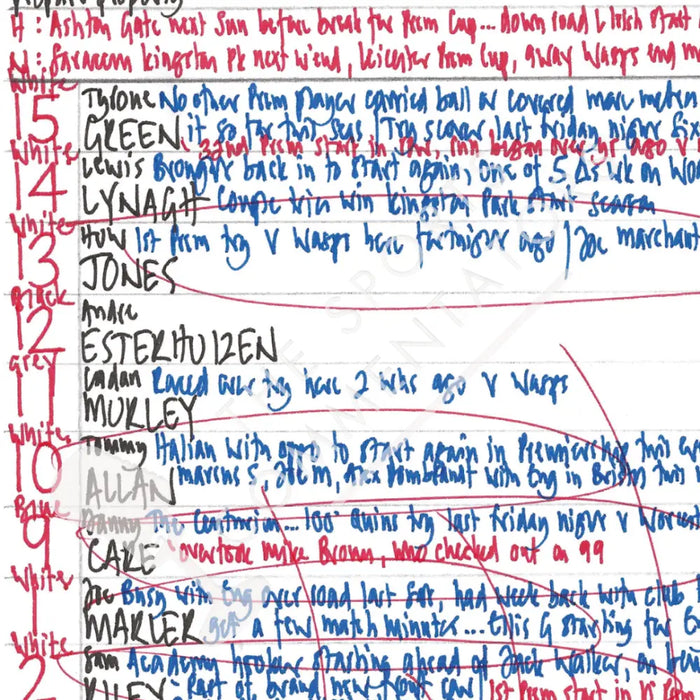 H : Ashton Gate next Sun before break for Prem Cup... down road L Irish start
N : Saracens Kingston Pk next w'end, Leicester Prem Cup, away Wasps end
White
15 Tyrone No other Prem player carried ball or covered more metres
GREEN it so far this seas | Try scorer last Friday night
White 22nd Prem start in row, run began over ago v
14 Lewis Brought back in to start again, one of 5 Δs wk on
LYNAGH Couple tries win Kingston Park start season
White
13 Huw 1st Prem try v Wasps here fortnight ago | Joe Marchant
JONES
Black
12 Andre
ESTERHUIZEN
Grey
11 Cadan Raced over try here 2 wks ago v Wasps
MURLEY
White
10 Tommy Italian with opp to start again in Premiership this
ALLAN Marcus S, Joe M, Alex Dombrandt with Eng in this
Blue
9 Danny The Centurion... 100th Quins try last Friday night v
CARE overtook Mike Brown, who checked out on 99
White
1 Joe Busy with Eng over road last Sat, had week back with club
MARLER get a few match minutes... this G starting for
White
2 Sam Academy hooker starting ahead of Jack Walker, on
RILEY Part of brand new front row | 1st Prem start in
THE SPORTS COMMENTATORS